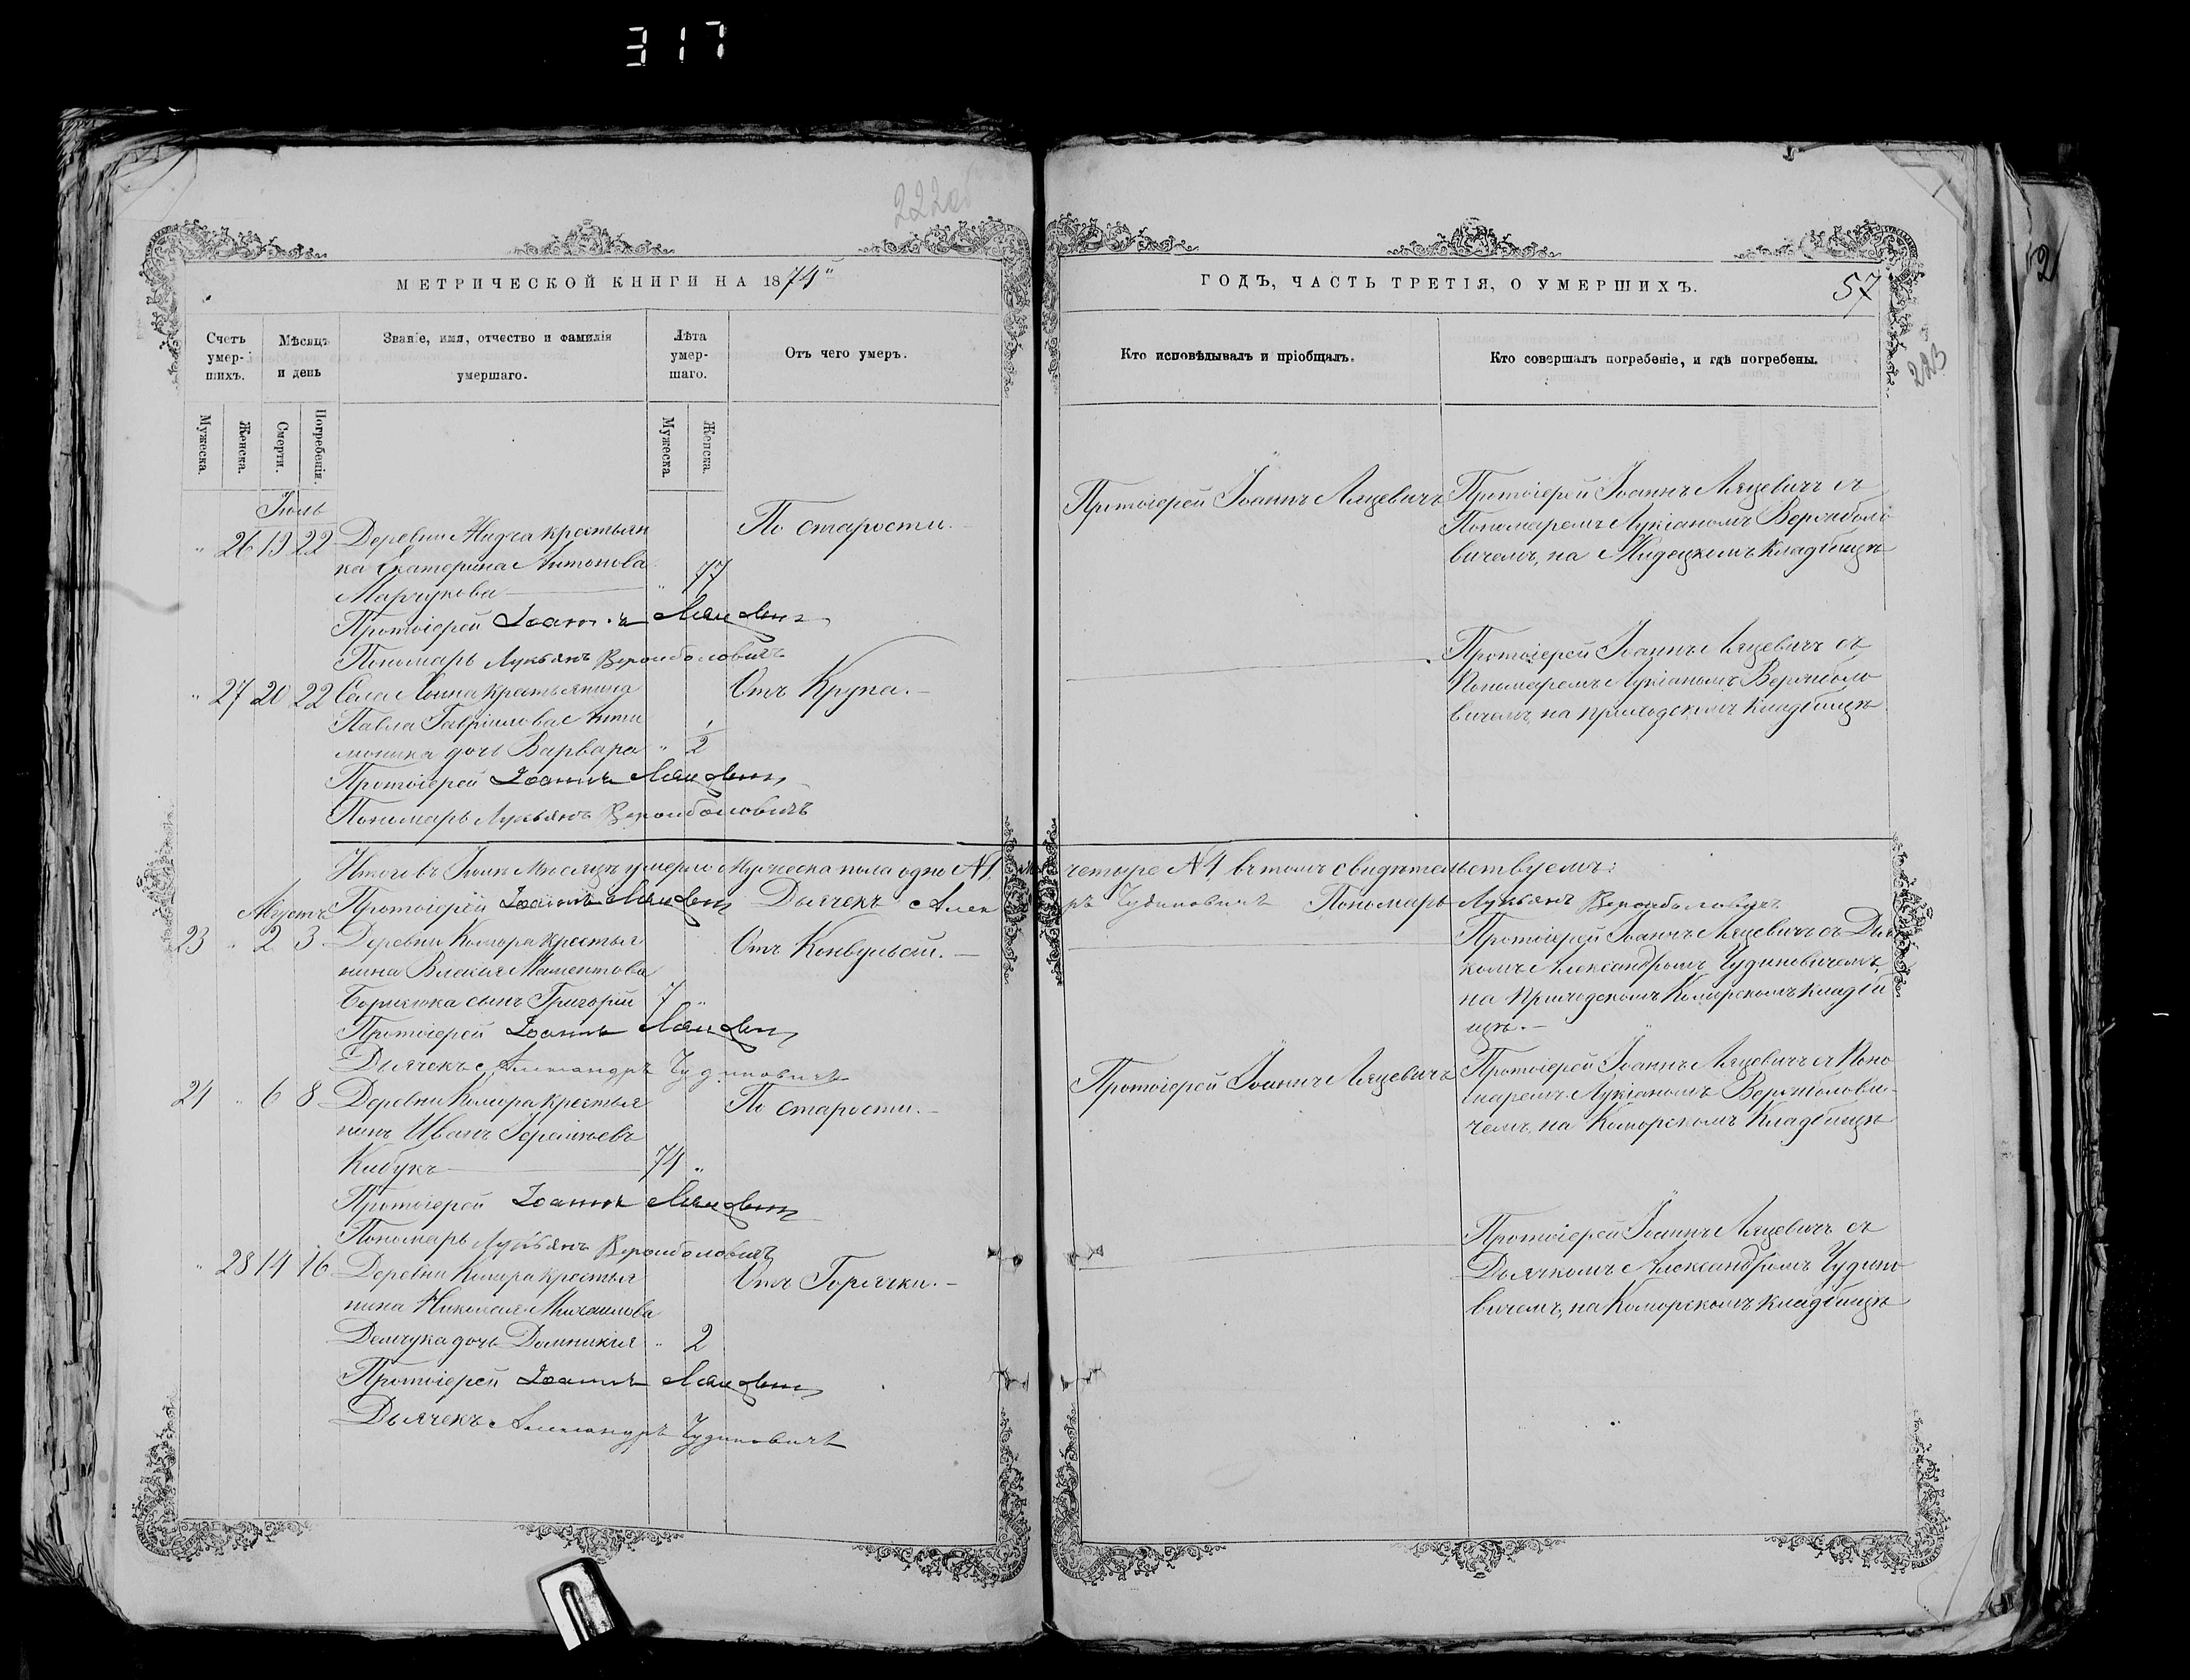 317
222об
МЕТРИЧЕСКОЙ КНИГИ НА 1874
Счетъ умер-шихъ.
Мѣсяцъ и день
Званіе, имя, отчество и фамилія умершаго.
Лѣта умер-шаго.
Отъ чего умеръ.
Мужеска.
Женска.
Смерти.
Погребенія.
Мужеска
Женска.
Іюль
" 26 19 22 Деревни Жидча крестьян
По старости.
ка Екатерина Антонова
Марчукова " 77
Протоіерей Іоаннъ Ляцевичъ
Пономарь Лукьянъ
" 27 20 22 Села крестьянина
Отъ Крупа.
Павла Гавріилова
дочь Варвара " 1/2
Протоіерей Іоаннъ Ляцевичъ
Пономарь Лукьянъ
Итого въ Іюлѣ Мѣсяцѣ умерло Мужеска пола одно №1,
Августъ Протоіерей Іоаннъ Ляцевичъ Дьячекъ Алек
23 " 2 3 Деревни Комора крестья
Отъ Конвульсіи.
нина Власія Маментова
Борисюка сынъ Григорій 7 "
Протоіерей Іоаннъ Ляцевичъ
Дьячекъ Александръ Чудиновичъ
24 " 6 8 Деревни Комора крестья
По старости.
нинъ Иванъ
Кибукъ 74 "
Протоіерей Іоаннъ Ляцевичъ
Пономарь Лукьянъ
" 28 14 16 Деревни Комора крестья
Отъ Горячки.
нина Николая Михаилова
Демчука дочь Домникія " 2
Протоіерей Іоаннъ Ляцевичъ
Дьячекъ Александръ Чудиновичъ
ГОДЪ, ЧАСТЬ ТРЕТІЯ, О УМЕРШИХЪ.
57
223
Кто исповѣдывалъ и пріобщалъ.
Кто совершалъ погребеніе, и гдѣ погребены.
Протоіерей Іоаннъ Ляцевичъ
Протоіерей Іоаннъ Ляцевичъ съ
Пономаремъ Лукіаномъ
вичемъ, на кладбищѣ
Протоіерей Іоаннъ Ляцевичъ съ
Пономаремъ Лукіаномъ
вичемъ, на приходскомъ кладбищѣ
четыре №4, въ томъ свидѣтельствуемъ:
ръ Чудиновичъ Пономарь Лукьянъ
Протоіерей Іоаннъ Ляцевичъ съ Дья
комъ Александромъ Чудиновичемъ,
на приходскомъ Коморскомъ кладби
щѣ.
Протоіерей Іоаннъ Ляцевичъ
Протоіерей Іоаннъ Ляцевичъ съ Поно
маремъ Лукіаномъ
чемъ, на Коморскомъ Кладбищѣ
Протоіерей Іоаннъ Ляцевичъ съ
Дьячкомъ Александромъ Чудино
вичемъ, на Коморскомъ кладбищѣ